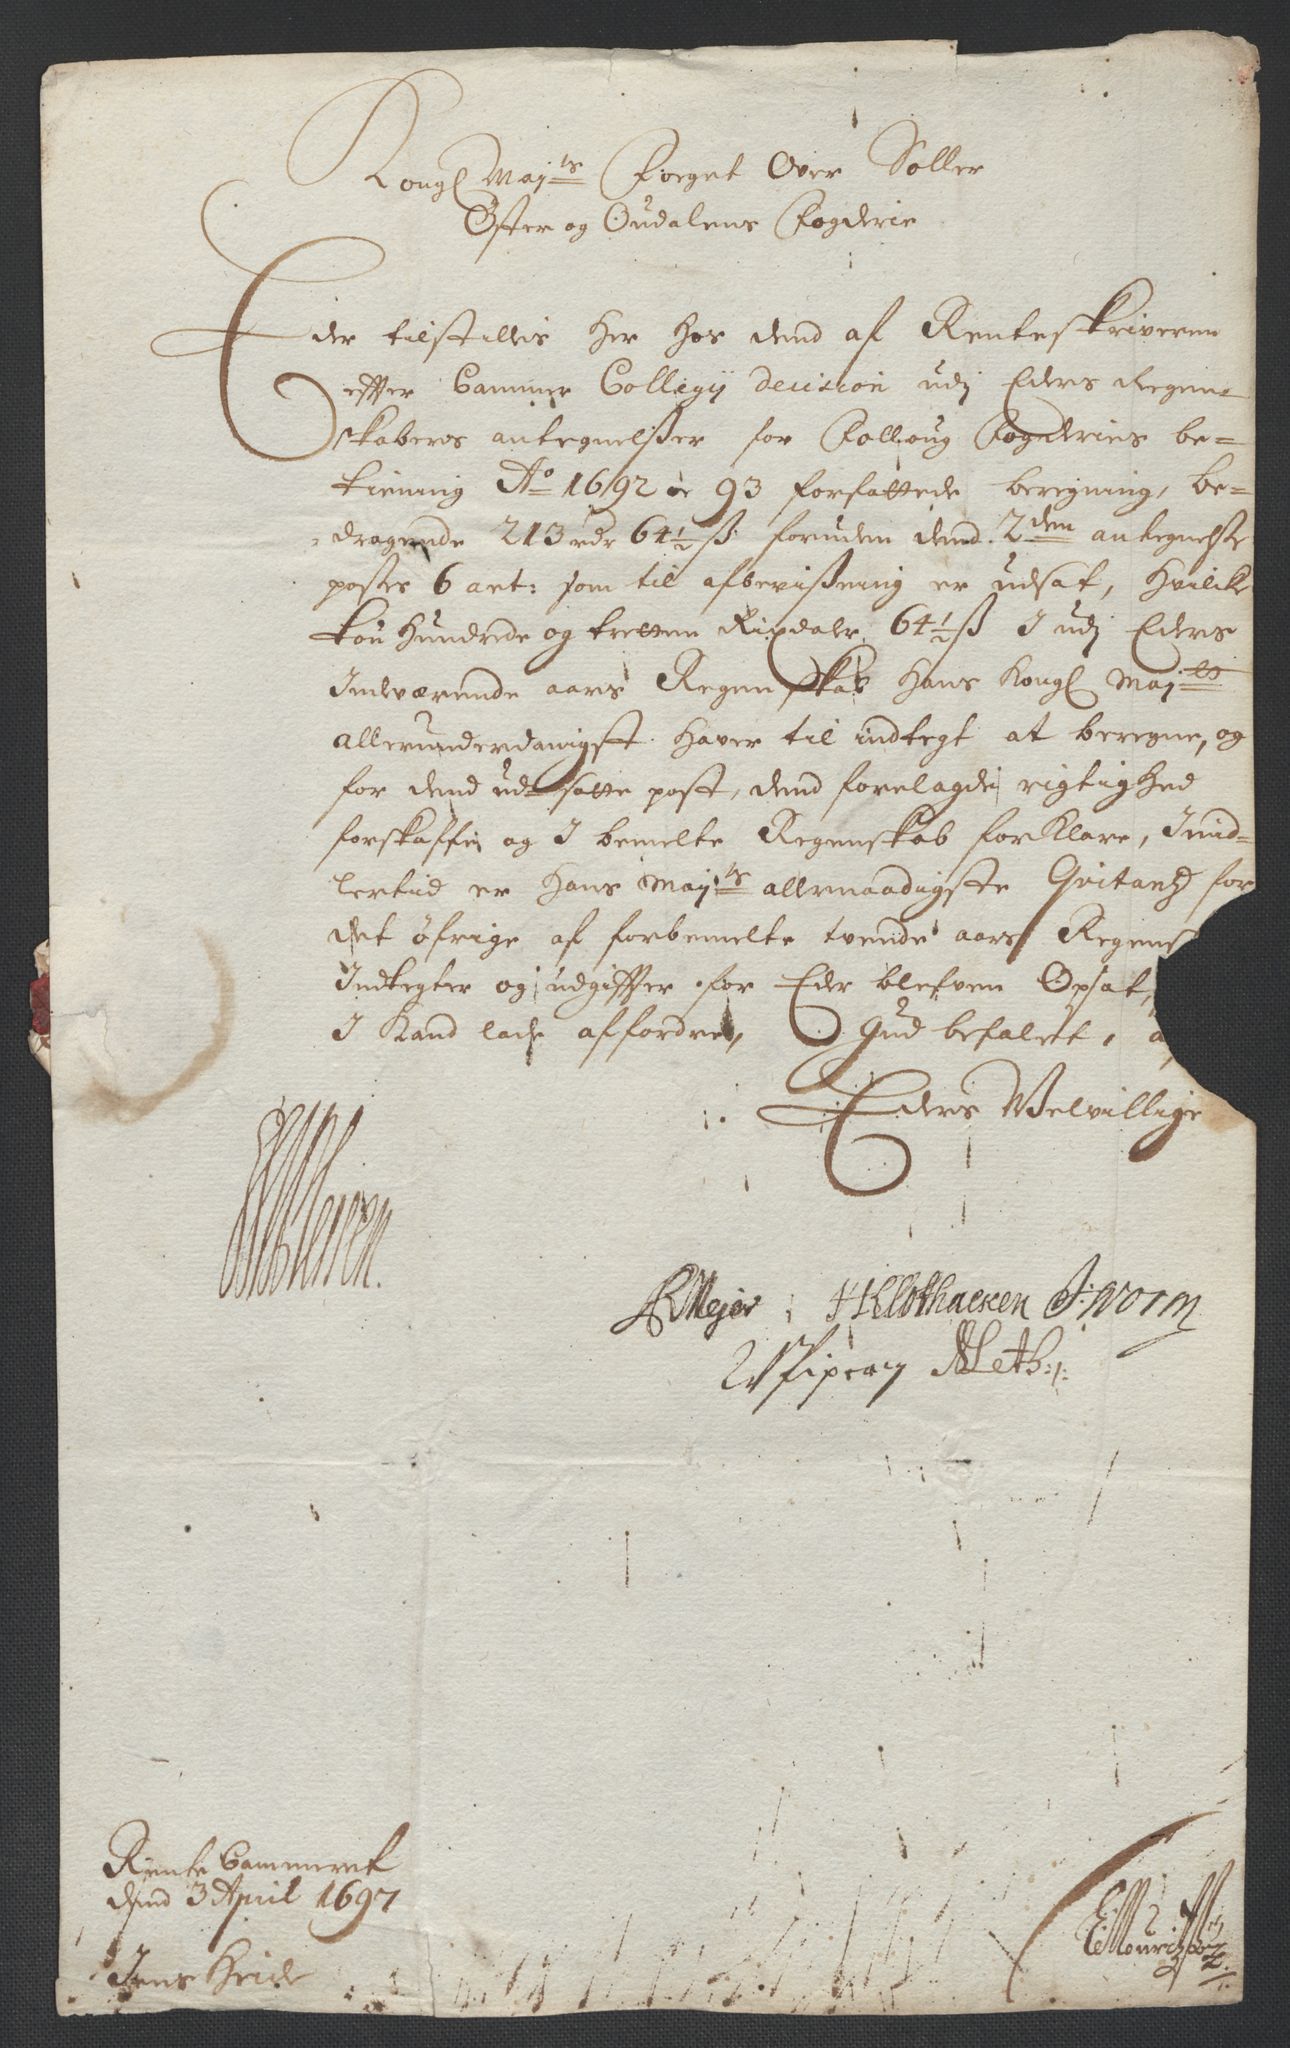 Kongl Maÿts Foeget Over Soller
Øster og Oudalens Fogderie
Eder tilstillis her hos dend af Renteskriveren
effter Cammer Collegij Decision udj Eders Regen-
skabers antegnelsser for Folloug Fogderies be-
tiening Ao 1692 oc 93 forfattede beregning, be-
dragende 213 rdr 64½ ß foruden dend 2den antegnelse
postes 6 art: som til afbevissning er udsat, hvilke
tou hundrede og tretten Rixdaler 64½ ß I udj Eders
Indeværende aars Regenskab Hans Kongl Maÿts
allerunderdanigst haver til indtegt at beregne, og
for dend udsatte post, dend forelagde rigtighed
forskaffe og I bemelte Regenskab forklare, Imid-
lertid er Hans Maÿts allernaadigste Qvitantz for
det öfrige af forbemelte tvende aars Regens
Indtegter og udgiffter for Eder blefven Opsat,
I kand lade affordre, Gud befalet, a
Eders Velvillige
Mejer H Klothacken J: Worm
Leth:
Rente Cammeret
dend 3 April 1697
Jens Heide